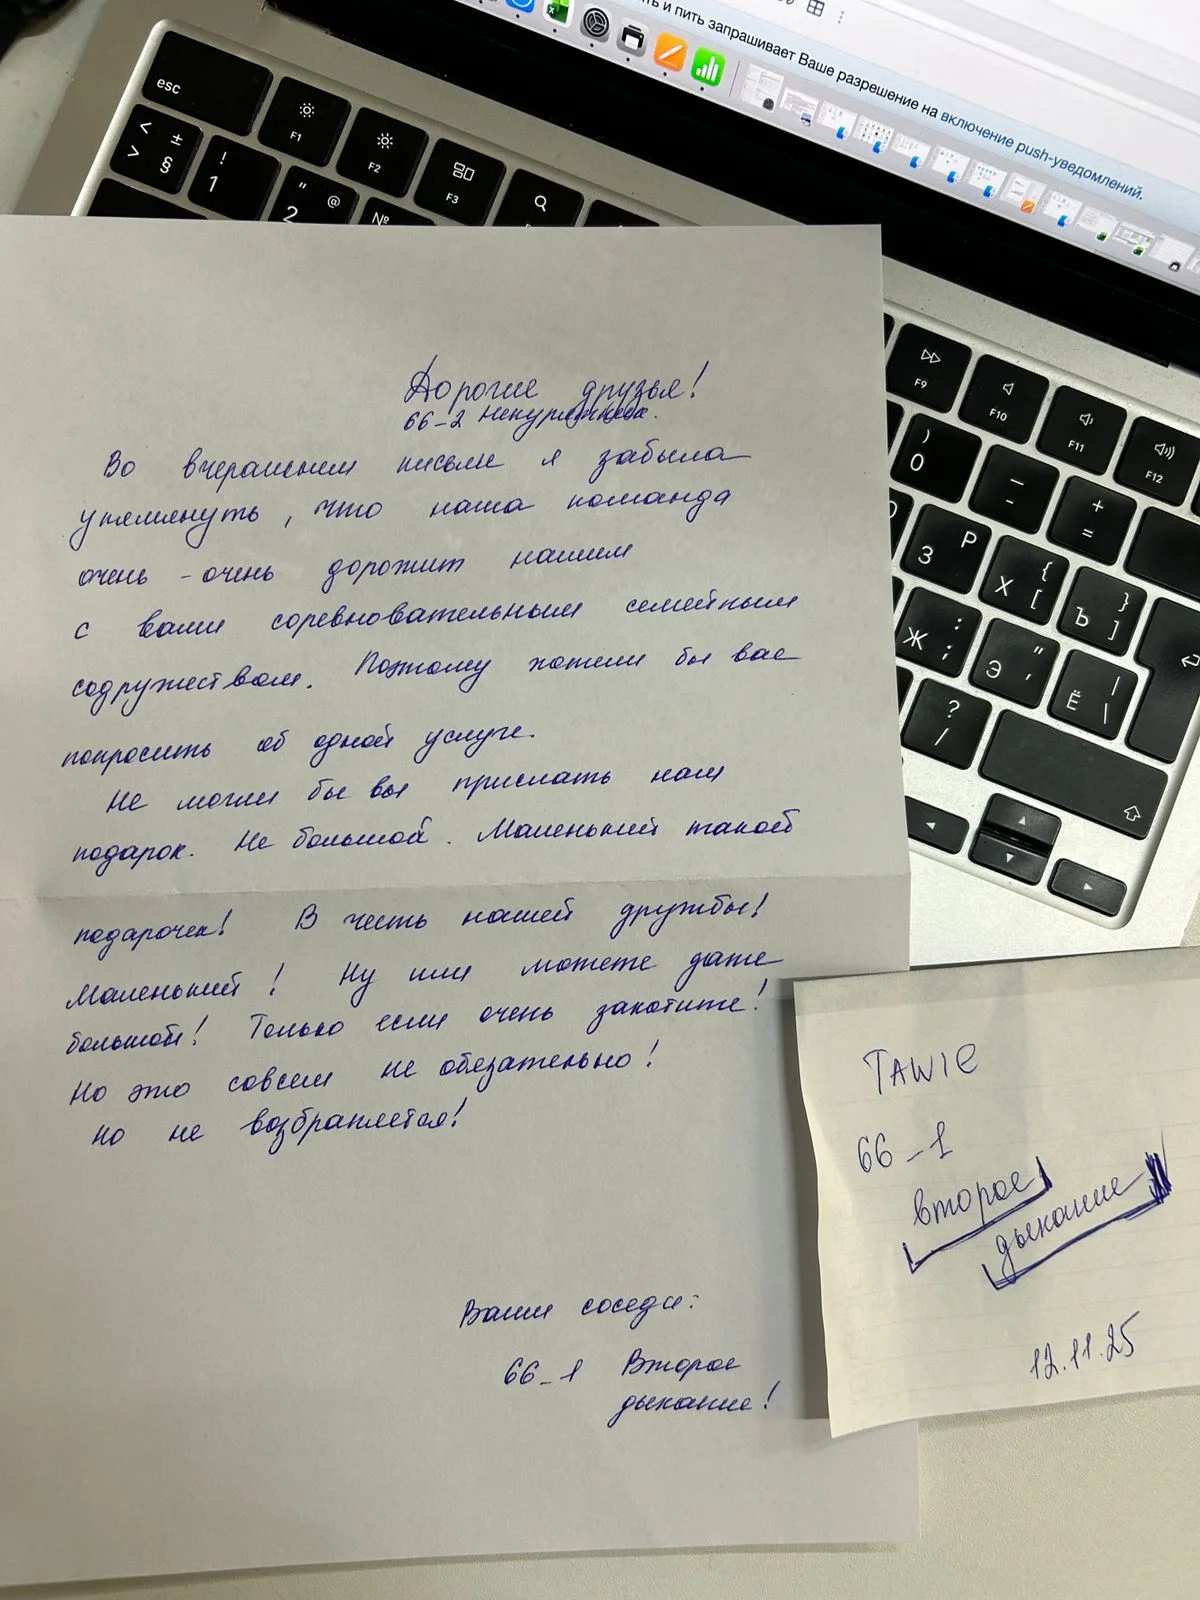 ть и пить запрашивает Ваше разрешение на включение push-уведомлений.
esc
F1
F2
F3
< ±
> §
!
1
" @
2
№
F9
F10
F11
F12
)
0
–
-
+
=
З Р
Х { [
Ъ } ]
Ж : ;
Э " '
Ё | \
? /
Дорогие друзья!
66-2
Во вчерашнем письме я забыла
упямянуть, что наша команда
очень - очень дорожит нашим
с вами соревновательным семейным
содружеством. Поэтому хотели бы вас
попросить об одной услуге.
Не могли бы вы прислать нам
подарок. Не большой. Маленький такой
подарочек! В честь нашей дружбы!
Маленький! Ну или можете даже
большой! Только если очень захотите!
Но это совсем не обязательно!
Но не возбраняется!
Ваши соседи:
66-1 Второе
дыхание!
66-1
второе
дыхание
12.11.25